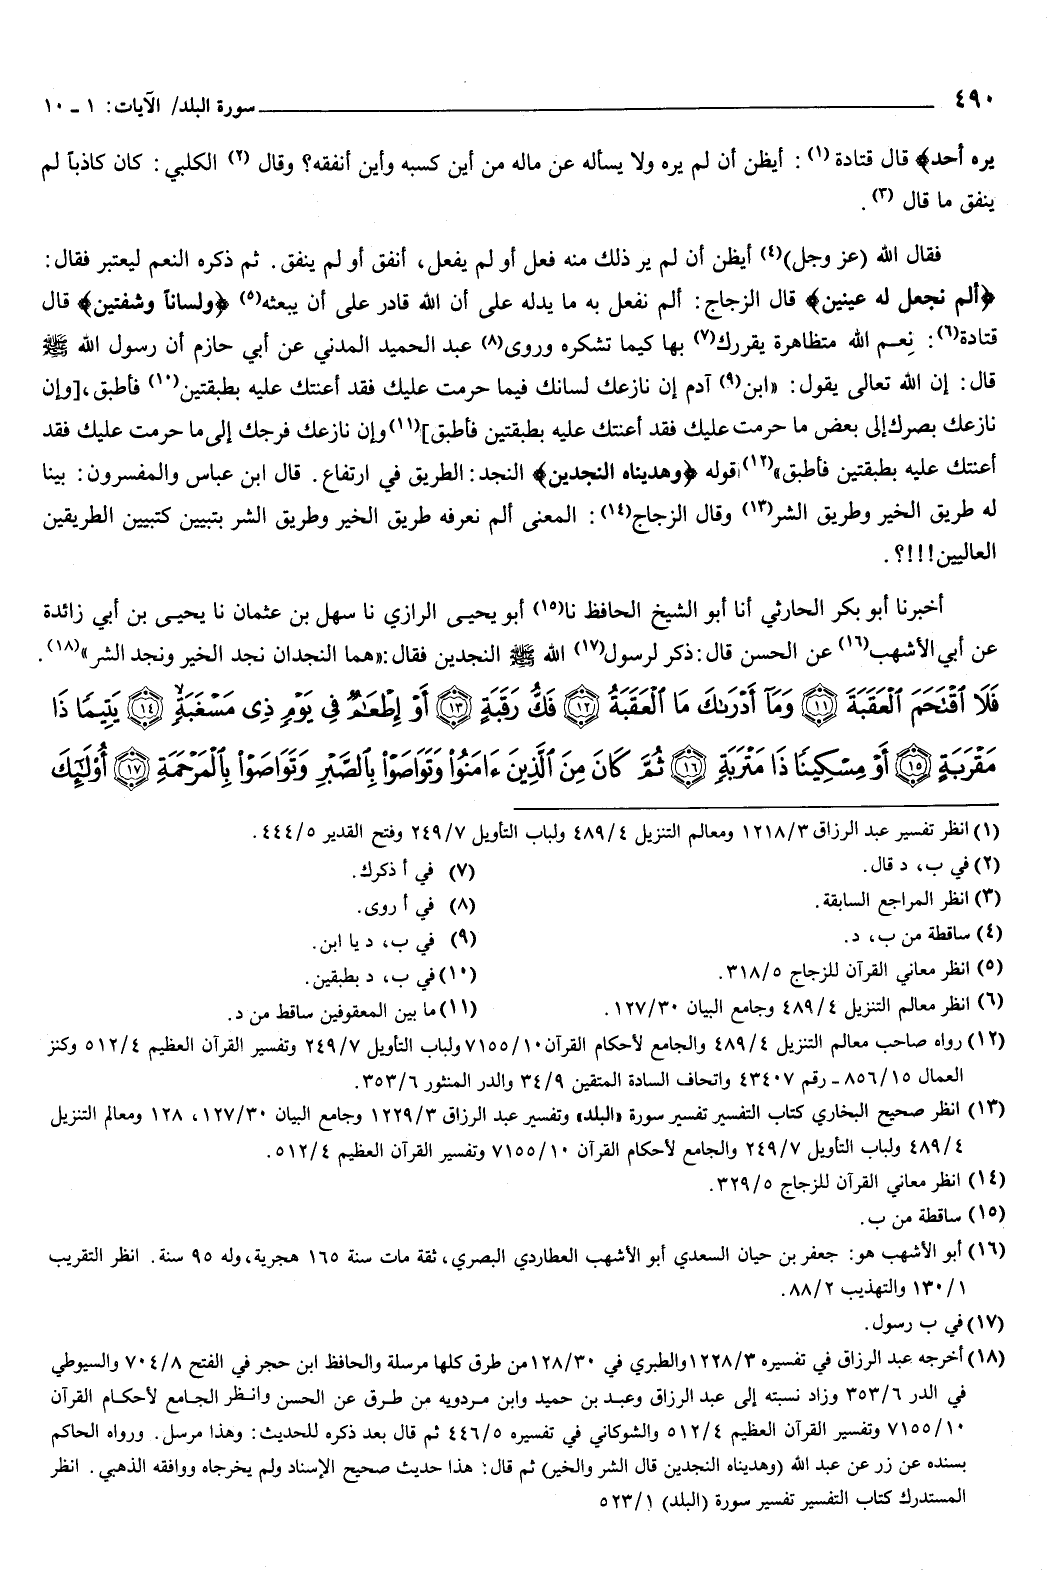 ٤٩٠ سورة البلد/ الآيات: ١ ـ ١٠
يره أحد﴾ قال قتادة (١): أيظن أن لم يره ولا يسأله عن ماله من أين كسبه وأين أنفقه؟ وقال (٢) الكلبي: كان كاذباً لم
ينفق ما قال (٣).
فقال الله (عز وجل)(٤) أيظن أن لم ير ذلك منه فعل أو لم يفعل، أنفق أو لم ينفق. ثم ذكره النعم ليعتبر فقال:
﴿ألم نجعل له عينين﴾ قال الزجاج: ألم نفعل به ما يدله على أن الله قادر على أن يبعثه(٥) ﴿ولساناً وشفتين﴾ قال
قتادة(٦): نِعـم الله متظاهرة يقررك(٧) بها كيما تشكره وروى(٨) عبد الحميد المدني عن أبي حازم أن رسول الله ﷺ
قال: إن الله تعالى يقول: «ابن(٩) آدم إن نازعك لسانك فيما حرمت عليك فقد أعنتك عليه بطبقتين(١٠) فأطبق،[وإن
نازعك بصرك إلى بعض ما حرمت عليك فقد أعنتك عليه بطبقتين فأطبق](١١) وإن نازعك فرجك إلى ما حرمت عليك فقد
أعنتك عليه بطبقتين فأطبق»(١٢) قوله ﴿وهديناه النجدين﴾ النجد: الطريق في ارتفاع. قال ابن عباس والمفسرون: بينا
له طريق الخير وطريق الشر(١٣) وقال الزجاج(١٤): المعنى ألم نعرفه طريق الخير وطريق الشر بتبيين كتبيين الطريقين
العاليين!!!؟.
أخبرنا أبو بكر الحارثي أنا أبو الشيخ الحافظ نا(١٥) أبو يحيـى الرازي نا سهل بن عثمان نا يحيـى بن أبي زائدة
عن أبي الأشهب(١٦) عن الحسن قال: ذكر لرسول(١٧) الله ﷺ النجدين فقال: «هما النجدان نجد الخير ونجد الشر»(١٨).
فَلَا ٱقْتَحَمَ ٱلْعَقَبَةَ ﴿١١﴾ وَمَآ أَدْرَىٰكَ مَا ٱلْعَقَبَةُ ﴿١٢﴾ فَكُّ رَقَبَةٍ ﴿١٣﴾ أَوْ إِطْعَٰمٌ فِى يَوْمٍ ذِى مَسْغَبَةٍ ﴿١٤﴾ يَتِيمًا ذَا
مَقْرَبَةٍ ﴿١٥﴾ أَوْ مِسْكِينًا ذَا مَتْرَبَةٍ ﴿١٦﴾ ثُمَّ كَانَ مِنَ ٱلَّذِينَ ءَامَنُوا۟ وَتَوَاصَوْا۟ بِٱلصَّبْرِ وَتَوَاصَوْا۟ بِٱلْمَرْحَمَةِ ﴿١٧﴾ أُو۟لَٰٓئِكَ
(١) انظر تفسير عبد الرزاق ١٢١٨/٣ ومعالم التنزيل ٤٨٩/٤ ولباب التأويل ٢٤٩/٧ وفتح القدير ٤٤٤/٥.
(٢) في ب، د قال.
(٣) انظر المراجع السابقة.
(٤) ساقطة من ب، د.
(٥) انظر معاني القرآن للزجاج ٣١٨/٥.
(٦) انظر معالم التنزيل ٤٨٩/٤ وجامع البيان ١٢٧/٣٠.
(٧) في أ ذكرك.
(٨) في أ روى.
(٩) في ب، د يا ابن.
(١٠) في ب، د بطبقين.
(١١) ما بين المعقوفين ساقط من د.
(١٢) رواه صاحب معالم التنزيل ٤٨٩/٤ والجامع لأحكام القرآن ٧١٥٥/١٠ ولباب التأويل ٢٤٩/٧ وتفسير القرآن العظيم ٥١٢/٤ وكنز
العمال ٨٥٦/١٥ ـ رقم ٤٣٤٠٧ واتحاف السادة المتقين ٣٤/٩ والدر المنثور ٣٥٣/٦.
(١٣) انظر صحيح البخاري كتاب التفسير تفسير سورة «البلد» وتفسير عبد الرزاق ١٢٢٩/٣ وجامع البيان ١٢٧/٣٠، ١٢٨ ومعالم التنزيل
٤٨٩/٤ ولباب التأويل ٢٤٩/٧ والجامع لأحكام القرآن ٧١٥٥/١٠ وتفسير القرآن العظيم ٥١٢/٤.
(١٤) انظر معاني القرآن للزجاج ٣٢٩/٥.
(١٥) ساقطة من ب.
(١٦) أبو الأشهب هو: جعفر بن حيان السعدي أبو الأشهب العطاردي البصري، ثقة مات سنة ١٦٥ هجرية، وله ٩٥ سنة. انظر التقريب
١٣٠/١ والتهذيب ٨٨/٢.
(١٧) في ب رسول.
(١٨) أخرجه عبد الرزاق في تفسيره ١٢٢٨/٣ والطبري في ١٢٨/٣٠ من طرق كلها مرسلة والحافظ ابن حجر في الفتح ٧٠٤/٨ والسيوطي
في الدر ٣٥٣/٦ وزاد نسبته إلى عبد الرزاق وعبد بن حميد وابن مردويه من طرق عن الحسن وانظر الجامع لأحكام القرآن
٧١٥٥/١٠ وتفسير القرآن العظيم ٥١٢/٤ والشوكاني في تفسيره ٤٤٦/٥ ثم قال بعد ذكره للحديث: وهذا مرسل. ورواه الحاكم
بسنده عن زر عن عبد الله (وهديناه النجدين قال الشر والخير) ثم قال: هذا حديث صحيح الإسناد ولم يخرجاه ووافقه الذهبي. انظر
المستدرك كتاب التفسير تفسير سورة (البلد) ٥٢٣/١